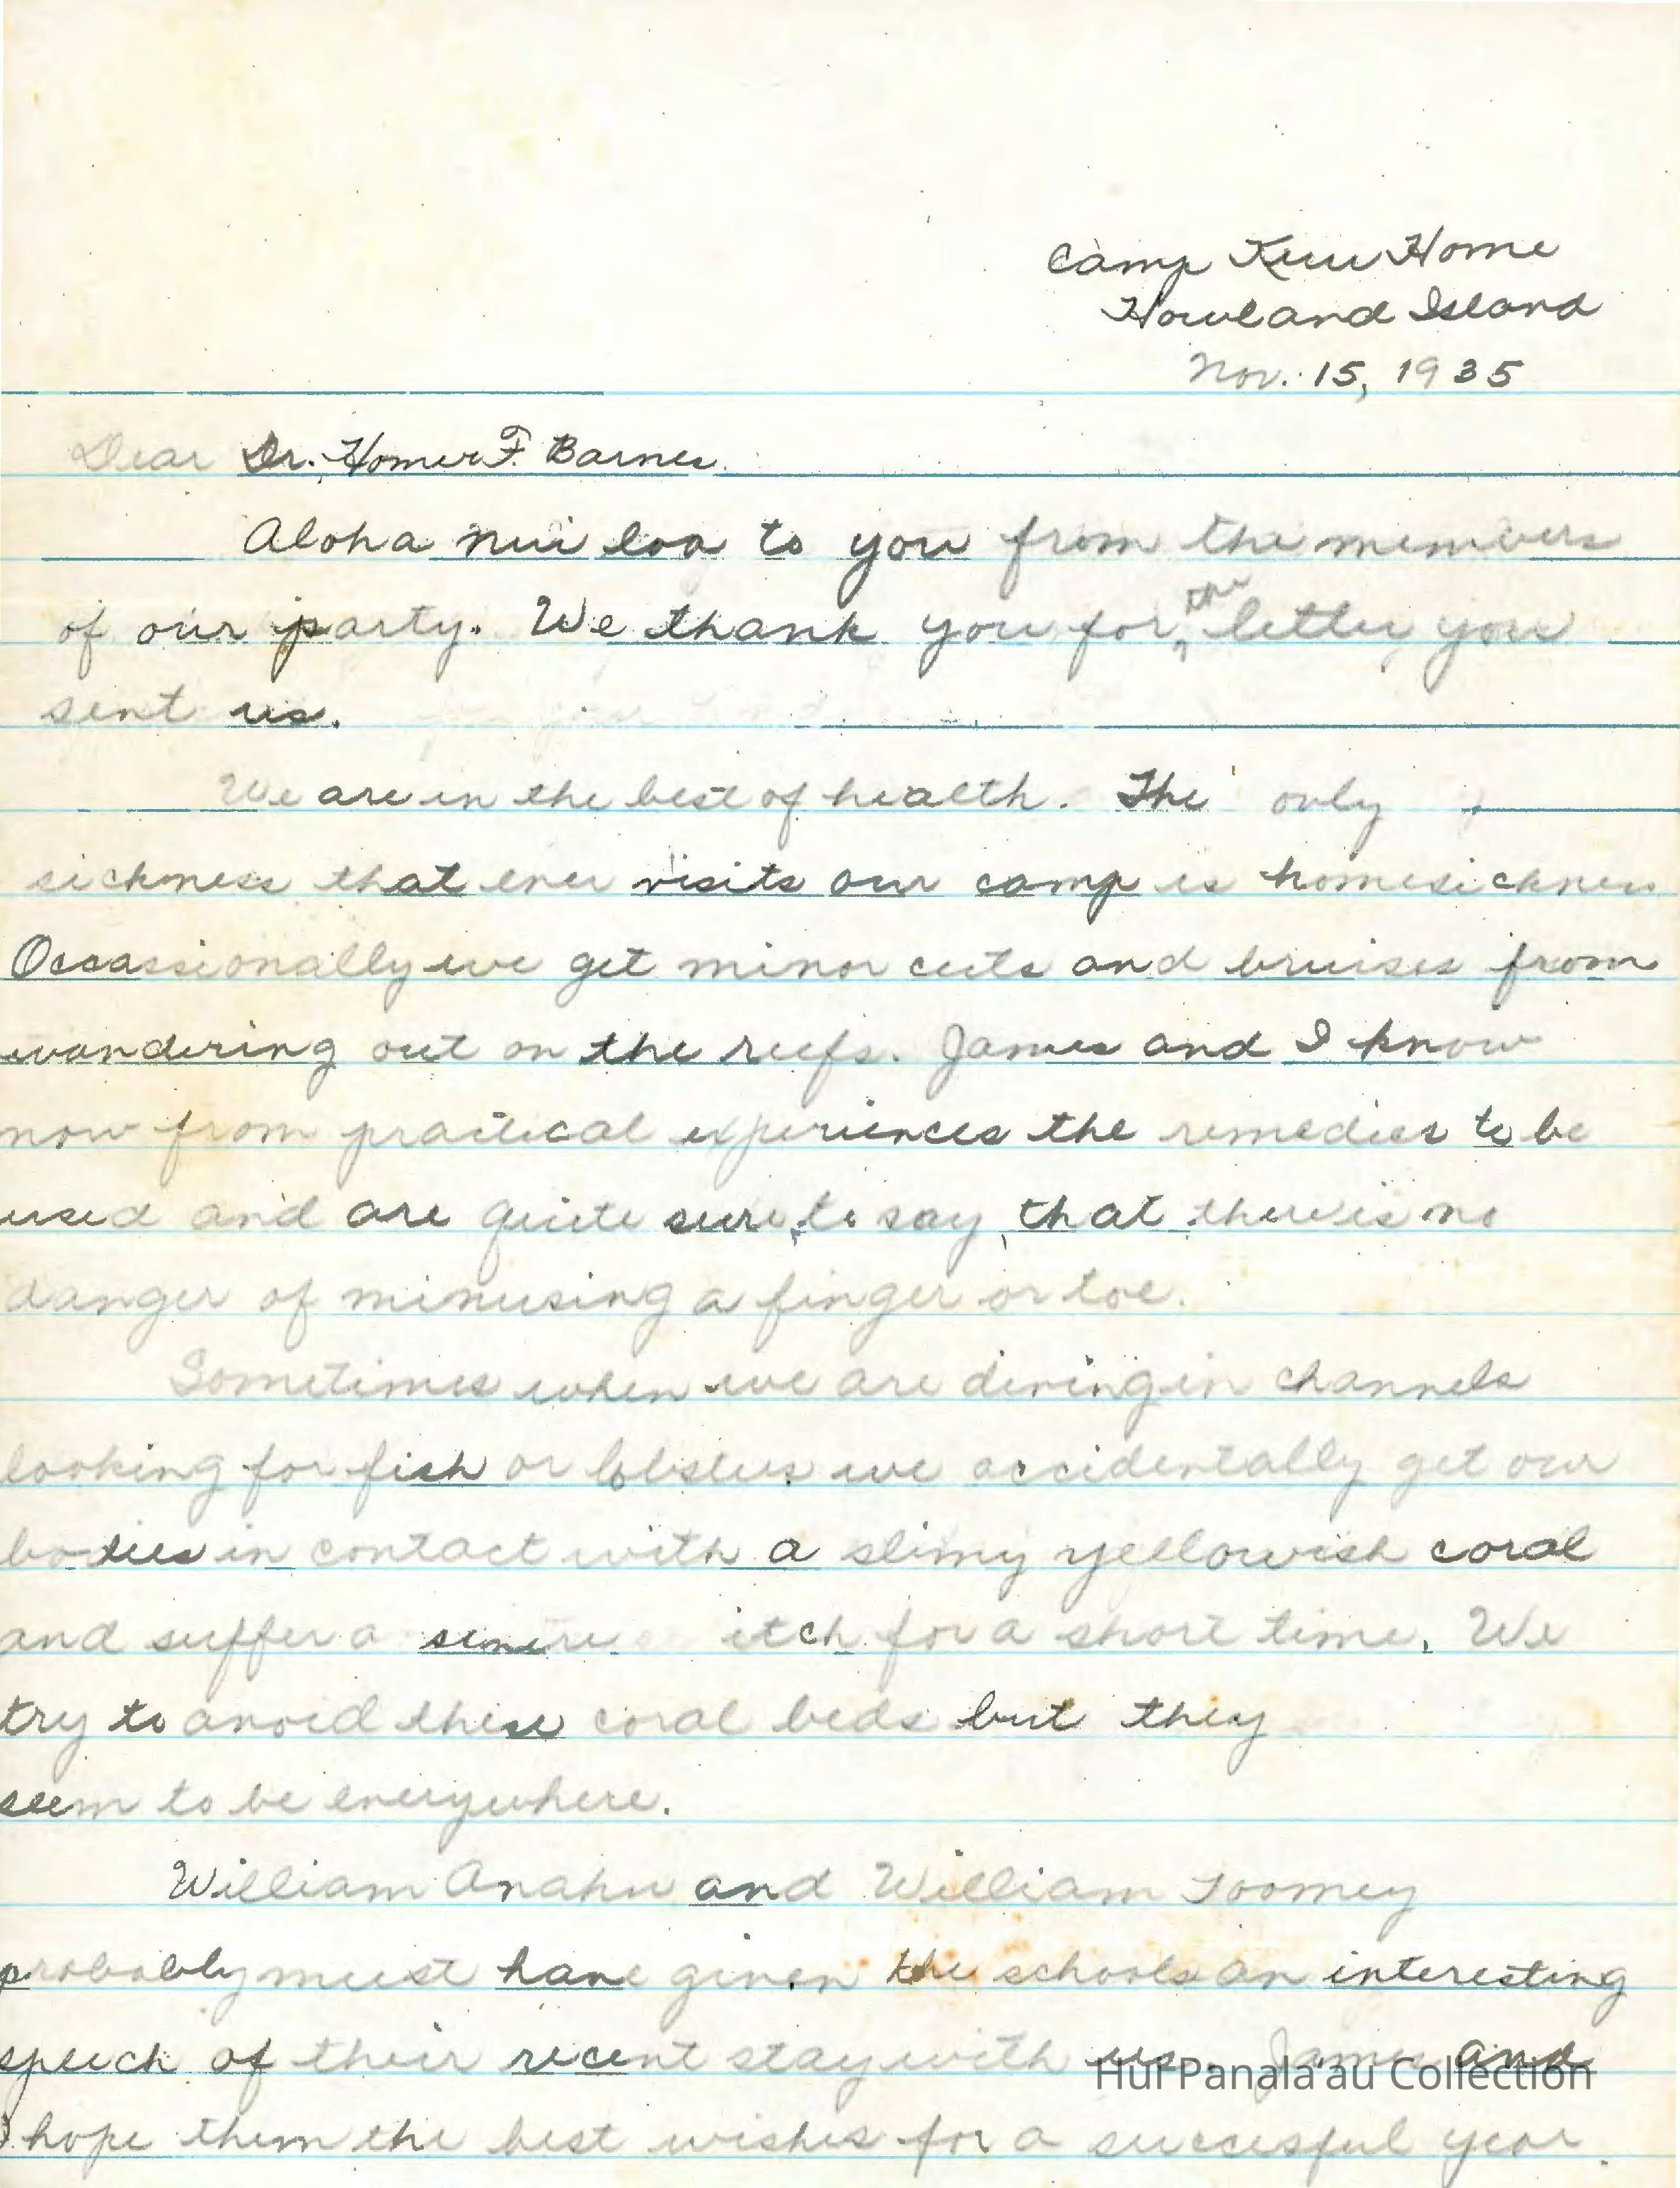 Camp Kuu Home
Howland Island
Nov. 15, 1935
Dear Dr. Homer F. Barnes.
Aloha nui loa to you from the members
of our party. We thank you for the letter you
sent us.
We are in the best of health. The only
sickness that ever visits our camp is homesickness
Occassionally we get minor cuts and bruises from
wandering out on the reefs. James and I know
now from practical experiences the remedies to be
used and are quite sure to say that there is no
danger of minusing a finger or toe.
Sometimes when we are diving in channels
looking for fish or lobsters we accidentally get our
bodies in contact with a slimy yellowish coral
and suffer a severe itch for a short time. We
try to avoid these coral beds but they
seem to be everywhere.
William Anahu and William Toomey
probably must have given the schools an interesting
speech of their recent stay with us. James and
I hope them the best wishes for a succesful year.
Hui Panalā'au Collection